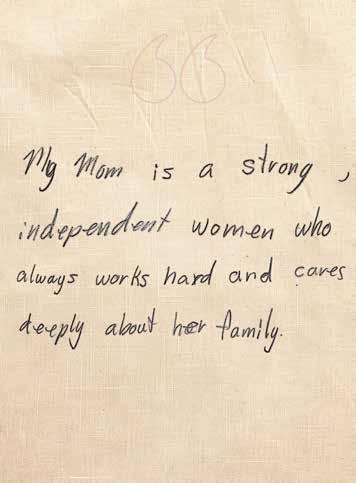 My Mom is a strong ,
independent women who
always works hard and cares
deeply about her family.